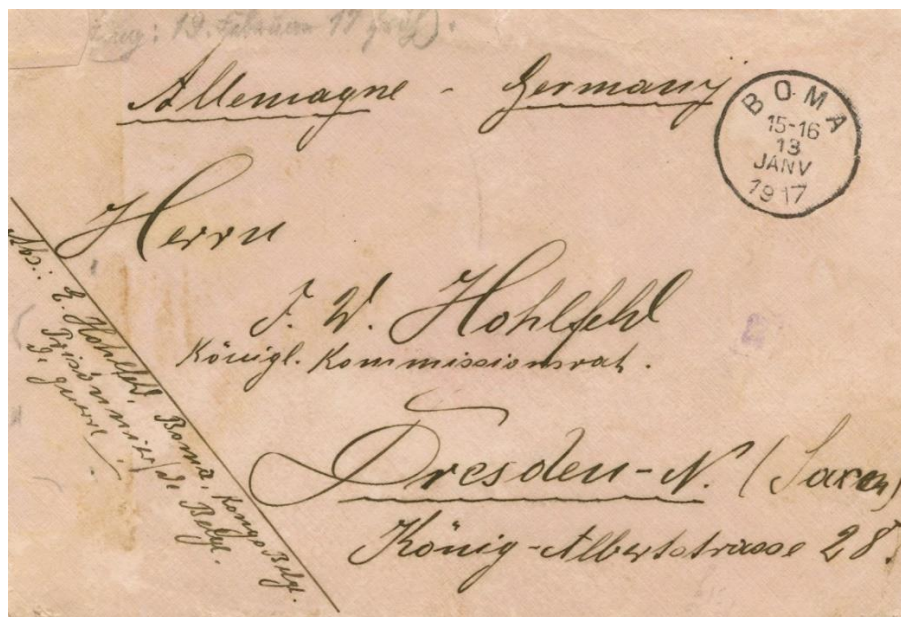 19. Februar 17
Allemagne - Germany
BOMA
15-16
13
JANV
1917
Herrn
F. W. Hohlfeld
Königl. Kommissionsrat.
Dresden-N. (Saxen)
König-Albertstrasse 28.
Abs.: E. Hohlfeld, Boma, Kongo Belge.
Prisonnier de Belg.
d. guerre